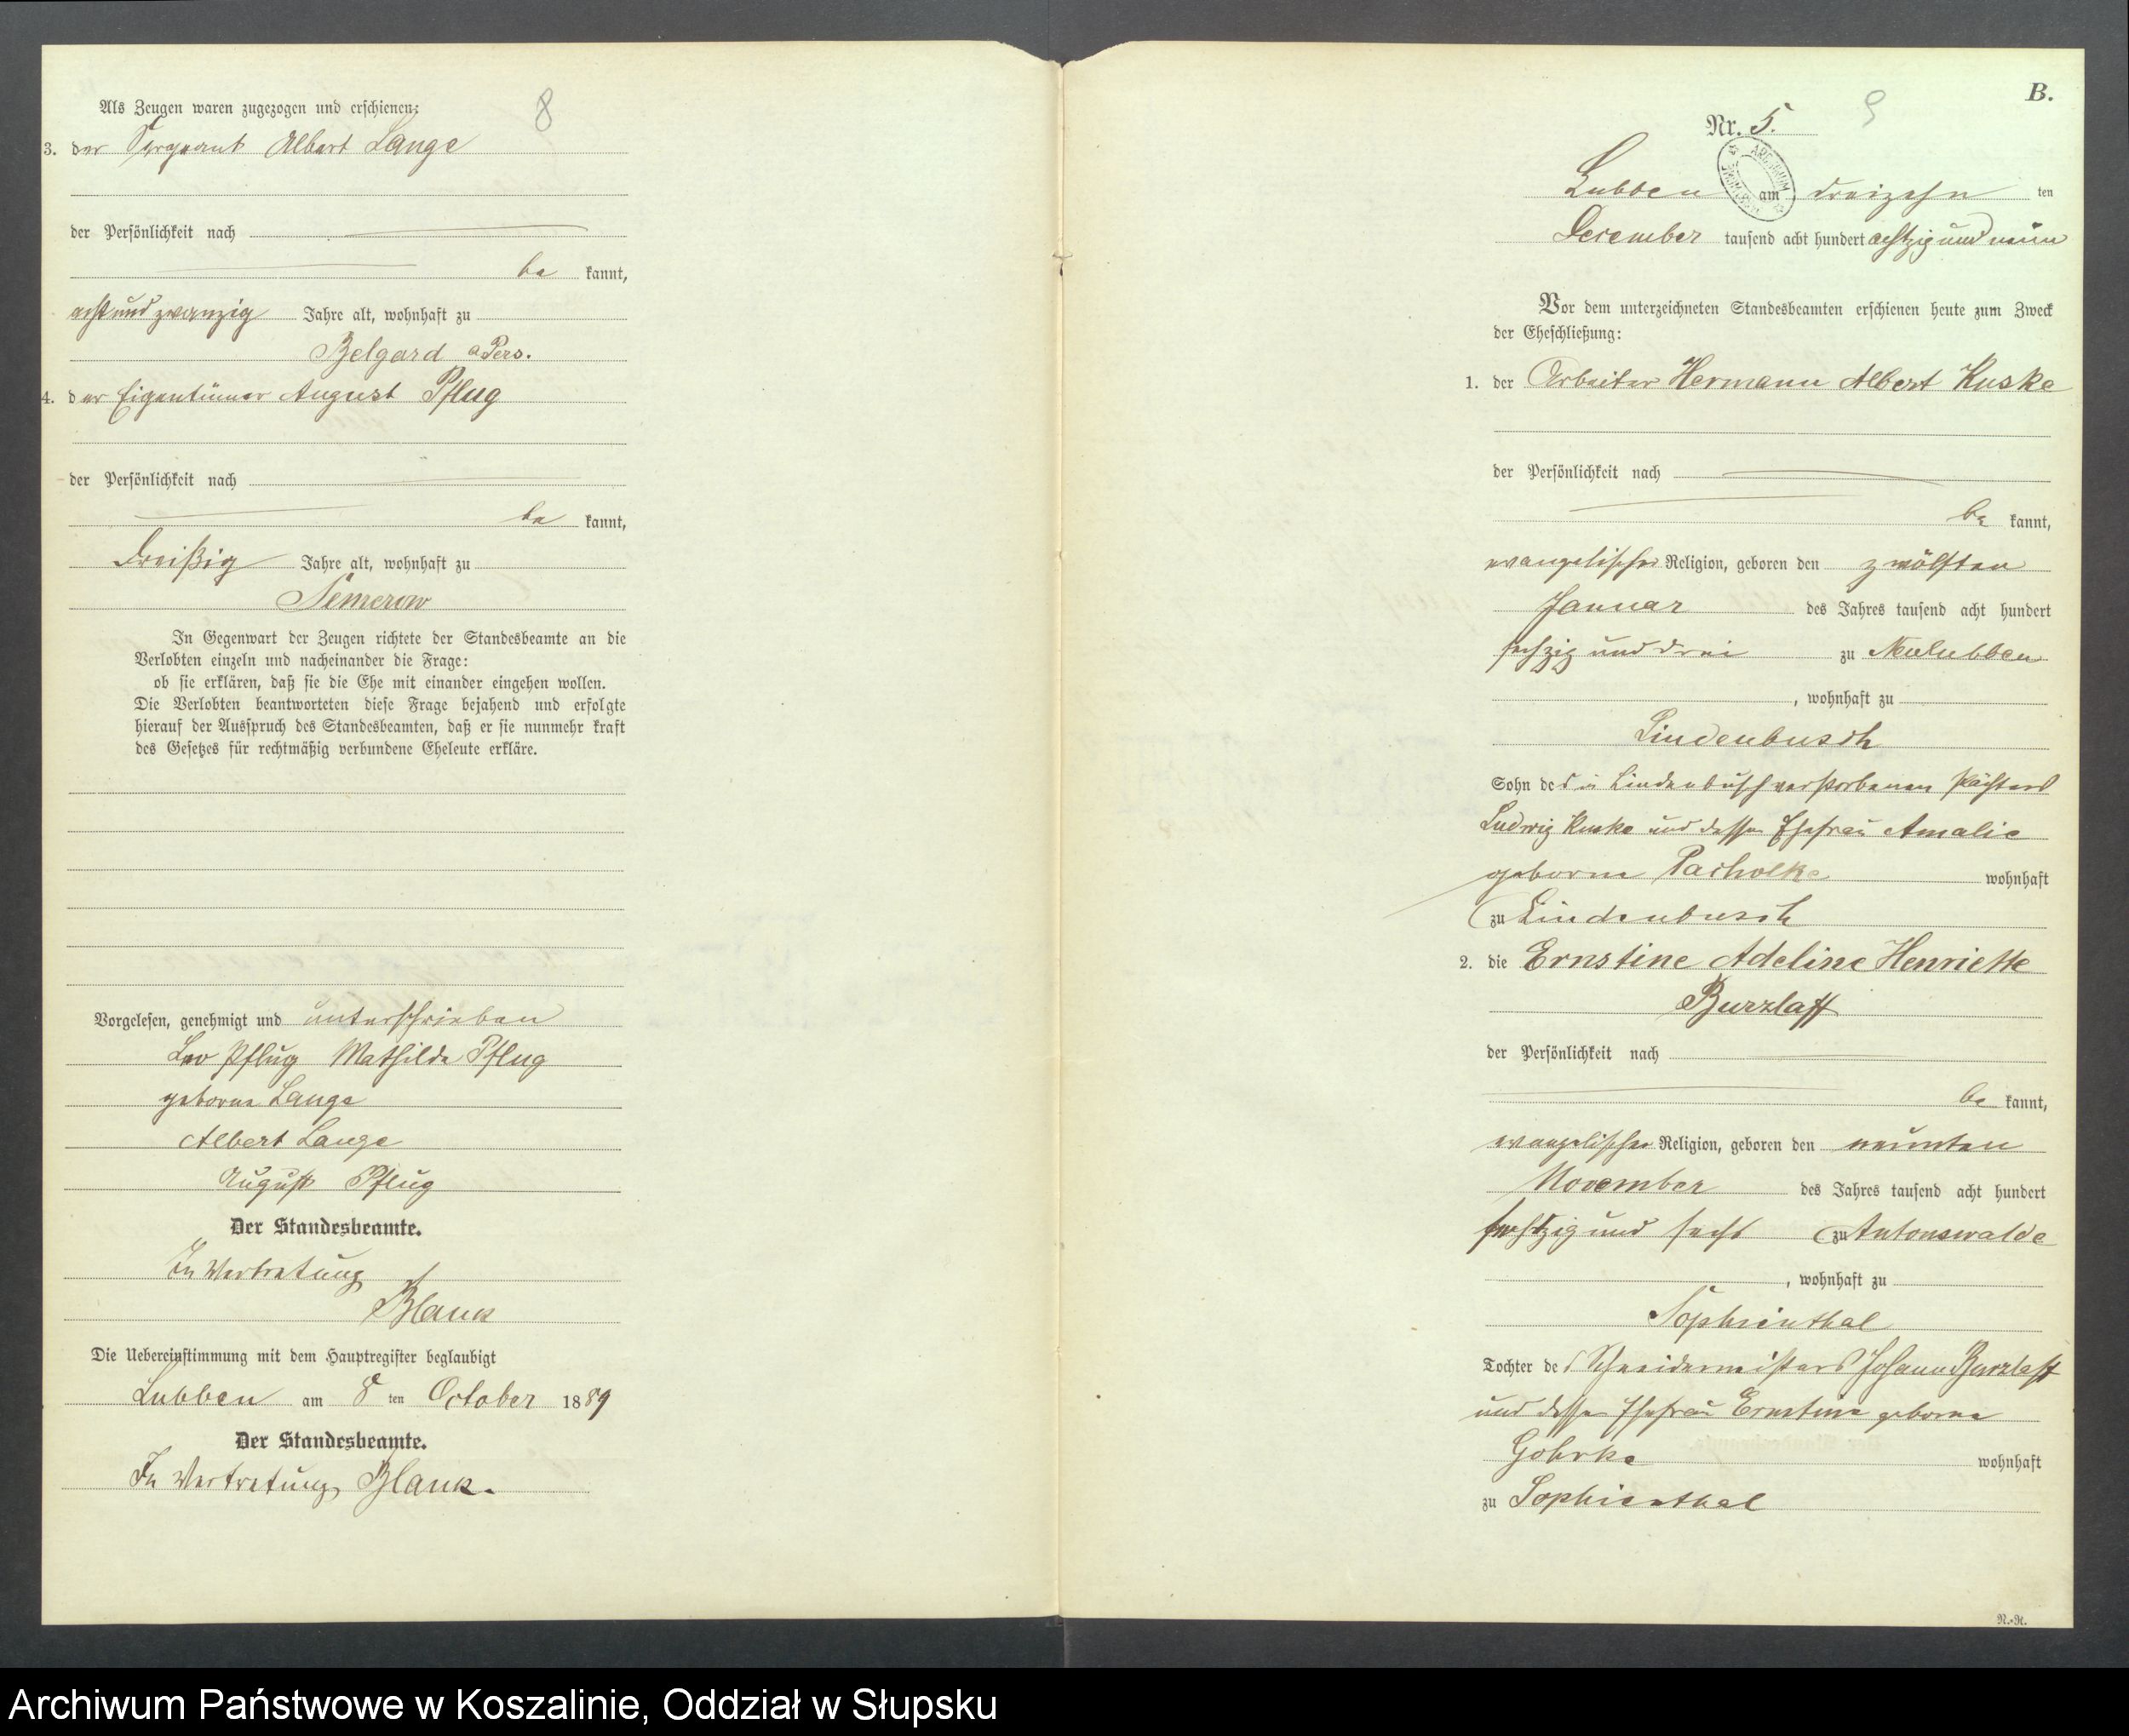 8
Als Zeugen waren zugezogen und erschienen:
3. der Sergeant Albert Lange
der Persönlichkeit nach
be kannt,
acht und zwanzig Jahre alt, wohnhaft zu
Belgard a Pers.
4. der Eigentümer August Pflug
der Persönlichkeit nach
be kannt,
dreißig Jahre alt, wohnhaft zu
Semerow
In Gegenwart der Zeugen richtete der Standesbeamte an die
Verlobten einzeln und nacheinander die Frage:
ob sie erklären, daß sie die Ehe mit einander eingehen wollen.
Die Verlobten beantworteten diese Frage bejahend und erfolgte
hierauf der Ausspruch des Standesbeamten, daß er sie nunmehr kraft
des Gesetzes für rechtmäßig verbundene Eheleute erkläre.
Vorgelesen, genehmigt und unterschrieben
Leo Pflug Mathilde Pflug
geborne Lange
Albert Lange
August Pflug
Der Standesbeamte.
In Vertretung
Blank
Die Uebereinstimmung mit dem Hauptregister beglaubigt
Lubben am 8 ten October 1889
Der Standesbeamte.
In Vertretung Blank.
B.
9
Nr. 5.
ARCHIWUM
Lubben am dreizehn ten
December tausend acht hundert achtzig und neun
Vor dem unterzeichneten Standesbeamten erschienen heute zum Zweck
der Eheschließung:
1. der Arbeiter Hermann Albert Kuske
der Persönlichkeit nach
be kannt,
evangelischer Religion, geboren den zwölften
Januar des Jahres tausend acht hundert
sechzig und drei zu Neulubben
, wohnhaft zu
Lindenbusch
Sohn des in Lindenbusch verstorbenen Pächters
Ludwig Kuske und dessen Ehefrau Amalie
geborne Pacholke wohnhaft
zu Lindenbusch
2. die Ernstine Adeline Henriette
Burzlaff
der Persönlichkeit nach
be kannt,
evangelischer Religion, geboren den neunten
November des Jahres tausend acht hundert
sechszig und sechs zu Antonswalde
, wohnhaft zu
Sophienthal
Tochter des Schneidermeisters Johann Burzlaff
und dessen Ehefrau Ernstine geborne
Gohrke wohnhaft
zu Sophienthal
R.-R.
Archiwum Państwowe w Koszalinie, Oddział w Słupsku